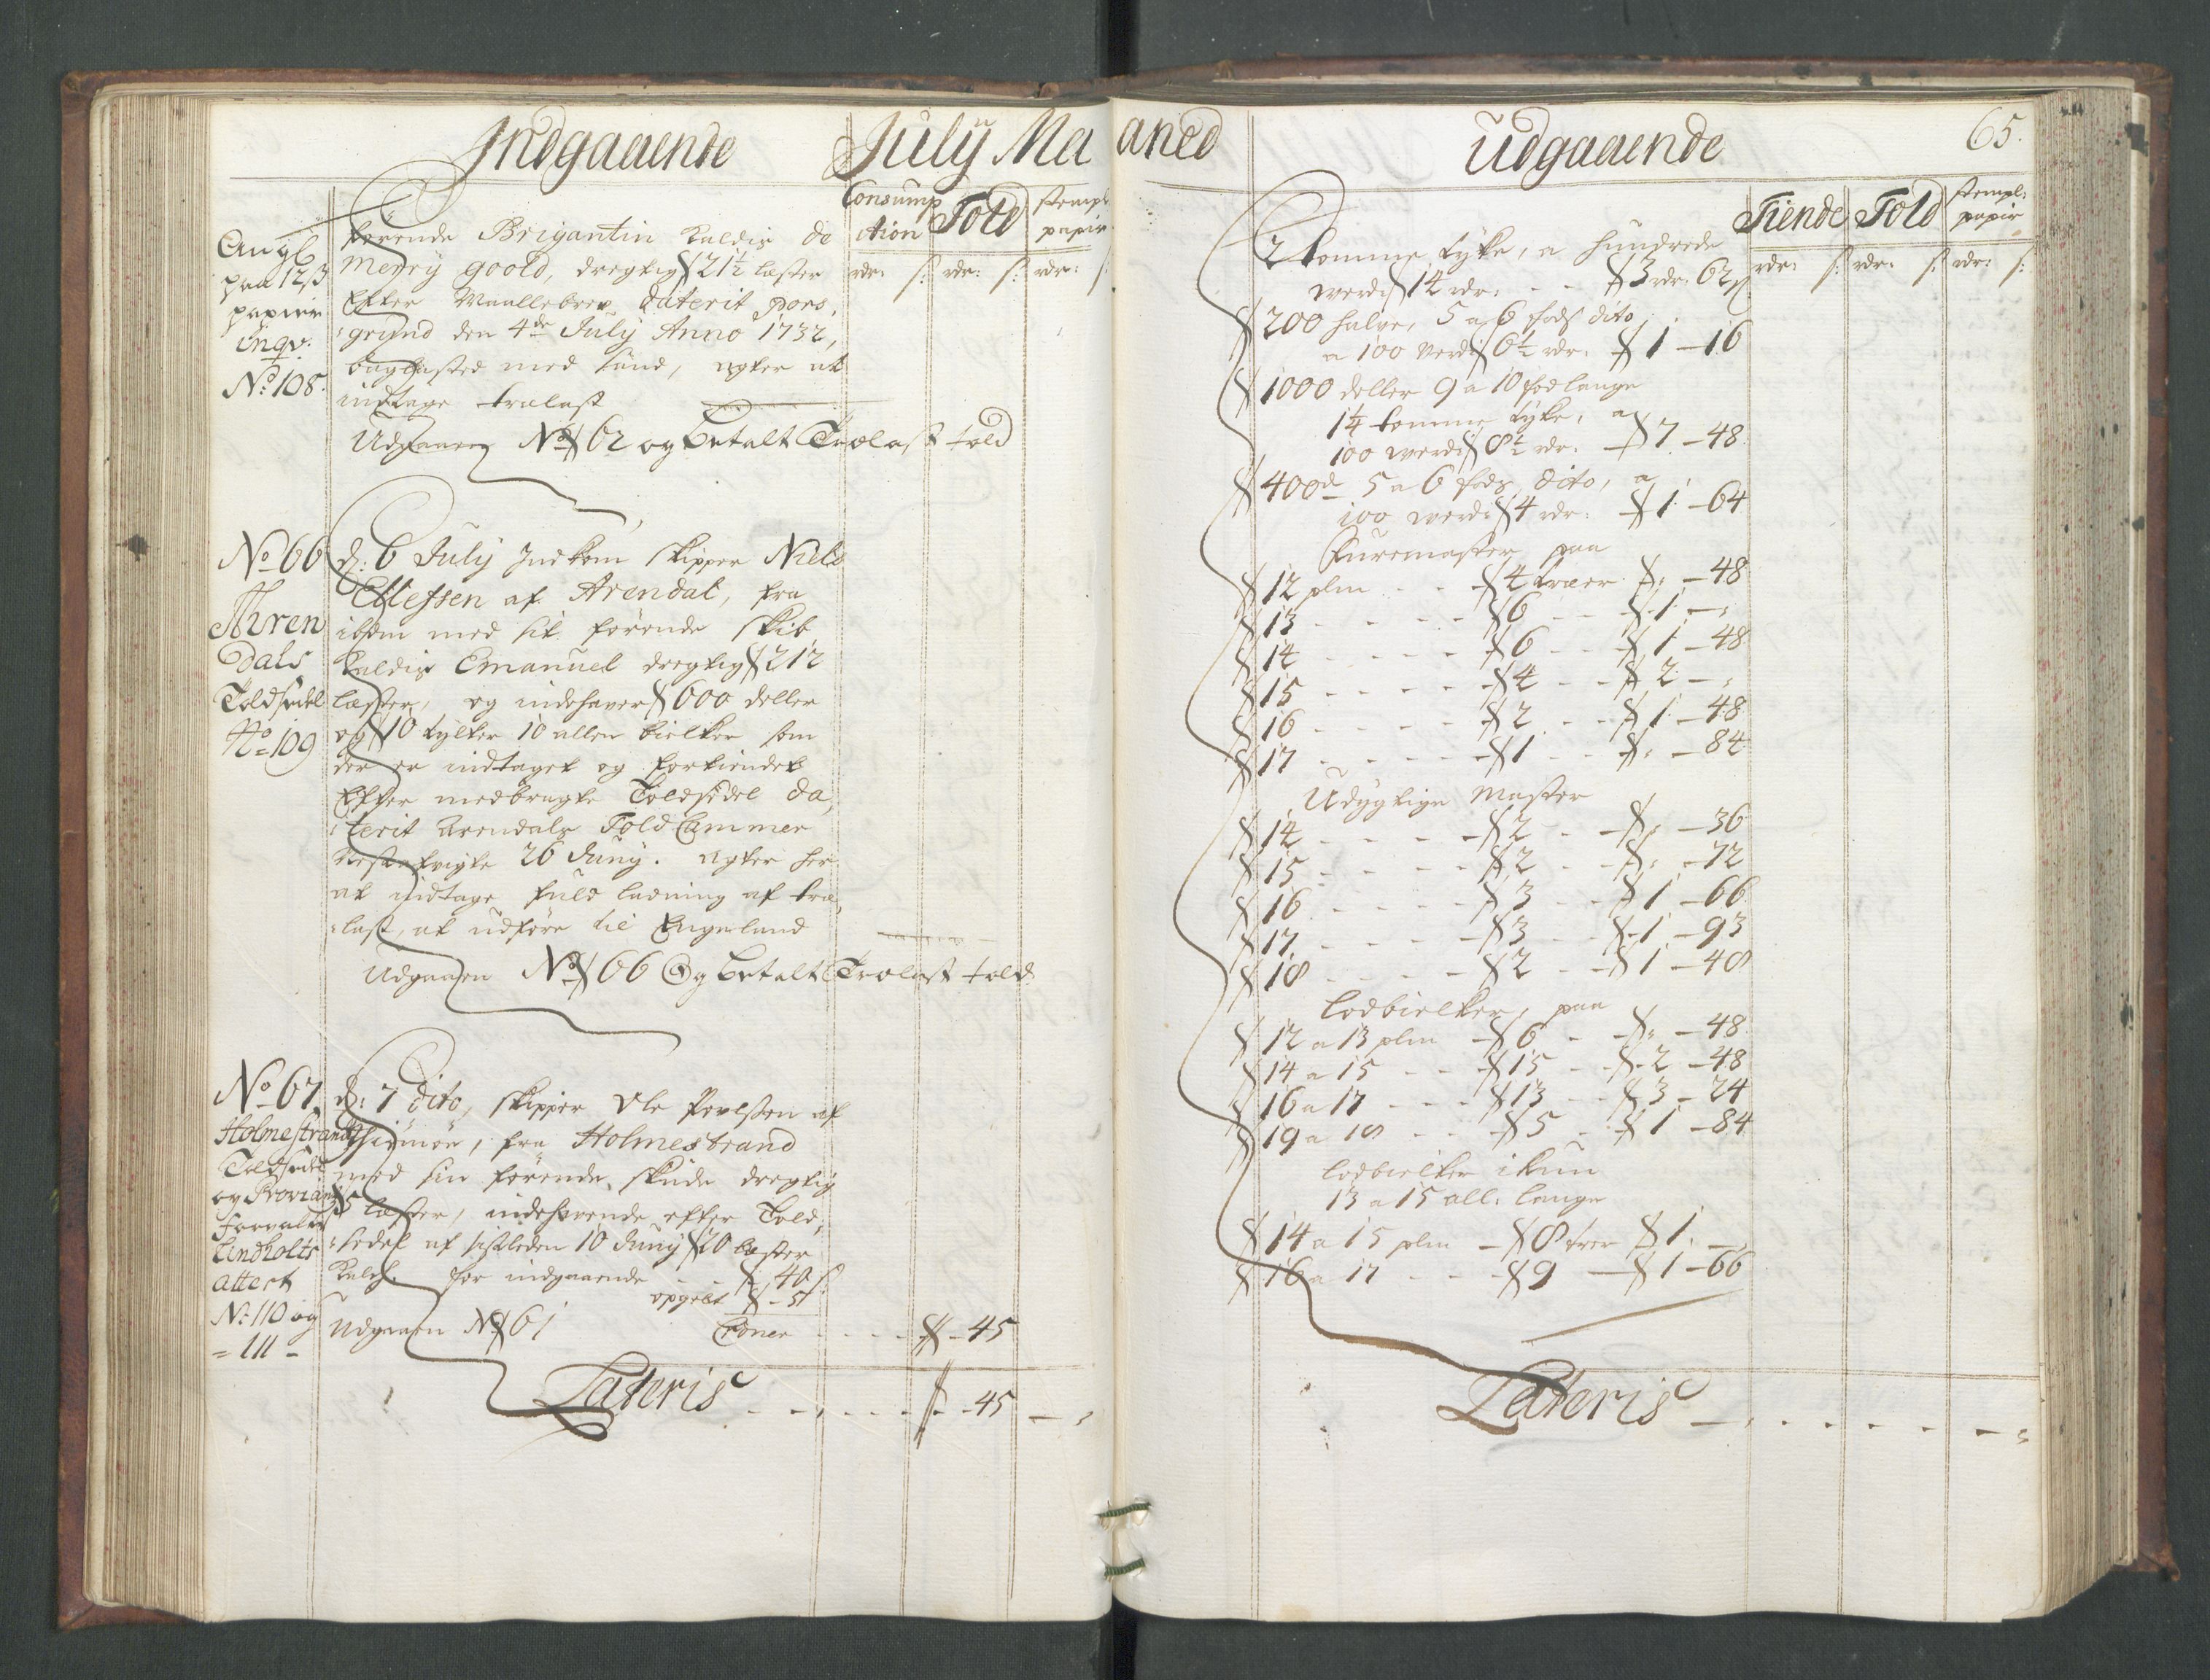 Indgaaende July Ma
Consump
ction Told stempl:
papir
rdr: s: rdr: s: rdr: s:
Angl
paa 12 s
papiir
inqv:
No: 108.
førende Brigantin kaldis de
Merry goold, dregtig 21½ læster
Efter Maallebrev daterit Pors,
:grund den 4de July Anno 1732,
baglasted med sand, agter at
indtage trælast
Udgaaen No 62 og betalt Trælast told
No 66
Ahren
dals
Toldsedel
No = 109
d: 6 July Indkom skipper Niels
Ellefsen af Arendal, fra
ibdm med sit førende skib
kaldis Emanuel dregtig 212
læster, og indehaver 600 deller
og 10 tylter 10 allen bielker som
der er indtaget og fortiendet
Efter medbragte Toldsedel da,
:terit Arendals Told Cammer
26 Juny. agter her
at indtage fuld ladning af træ,
:last, at udføre til Engeland
Udgaaen No 66 Og betalt Trælast told
No 67
Holmestrands
Toldsedel
og Proviant
forvalter
Lindholts
attest
No: 110 og
= 111 -
d: 7 dito, skipper Ole Povelsen af
fra Holmestrand
med sin førende skude dregtig
5 læster, indehavende efter Told,
:sedel af sistleden 10 Juny 20 læster
kalch. for indgaaende - - 40 s:
opgelt - 5
Udgaaen No 61 - - - - - 45
Lateris - - - - - - 45 -
aned Udgaaende 65.
Tiende Told stempl:
papir
rdr: s: rdr: s: rdr: s:
2 tomme tyke, a hundrede
werdi 14 rdr: - - 3 rdr: 62 s
200 halve, 5 a 6 fods dito
a 100 Verdi 6½ rdr: 1 - 16
1000 deller 9 a 10 fod lange
1¼ tomme tyke, a
100 werdi 8½ rdr: 7 - 48
400d 5 a 6 fods dito, a
100 werdi 4 rdr: 1 - 64
Furemaster paa
12 plm - - 4 træer : - 48
13 - - - - 6 - - 1 - :
14 - - - - 6 - - 1 - 48
15 - - - - 4 - - 2 - :
16 - - - - 2 - - 1 - 48
17 - - - - 1 - - : - 84
Udygtige Master
14 - - - - 2 - - : - 36
15 - - - - 2 - - : - 72
16 - - - - 3 - - 1 - 66
17 - - - - 3 - - 1 - 93
18 - - - - 2 - - 1 - 48
Lodbielker, paa
12 a 13 plm - 6 - - : - 48
14 a 15 - - 15 - - 2 - 48
16 a 17 - - - 13 - - 3 - 24
19 a 18 - - 5 - 1 - 84
lodbielker ikun
13 a 15 all: lange
14 a 15 plm - 8 træer 1 -
16 a 17 - - - 9 - 1 - 66
Lateris - - - - - - -